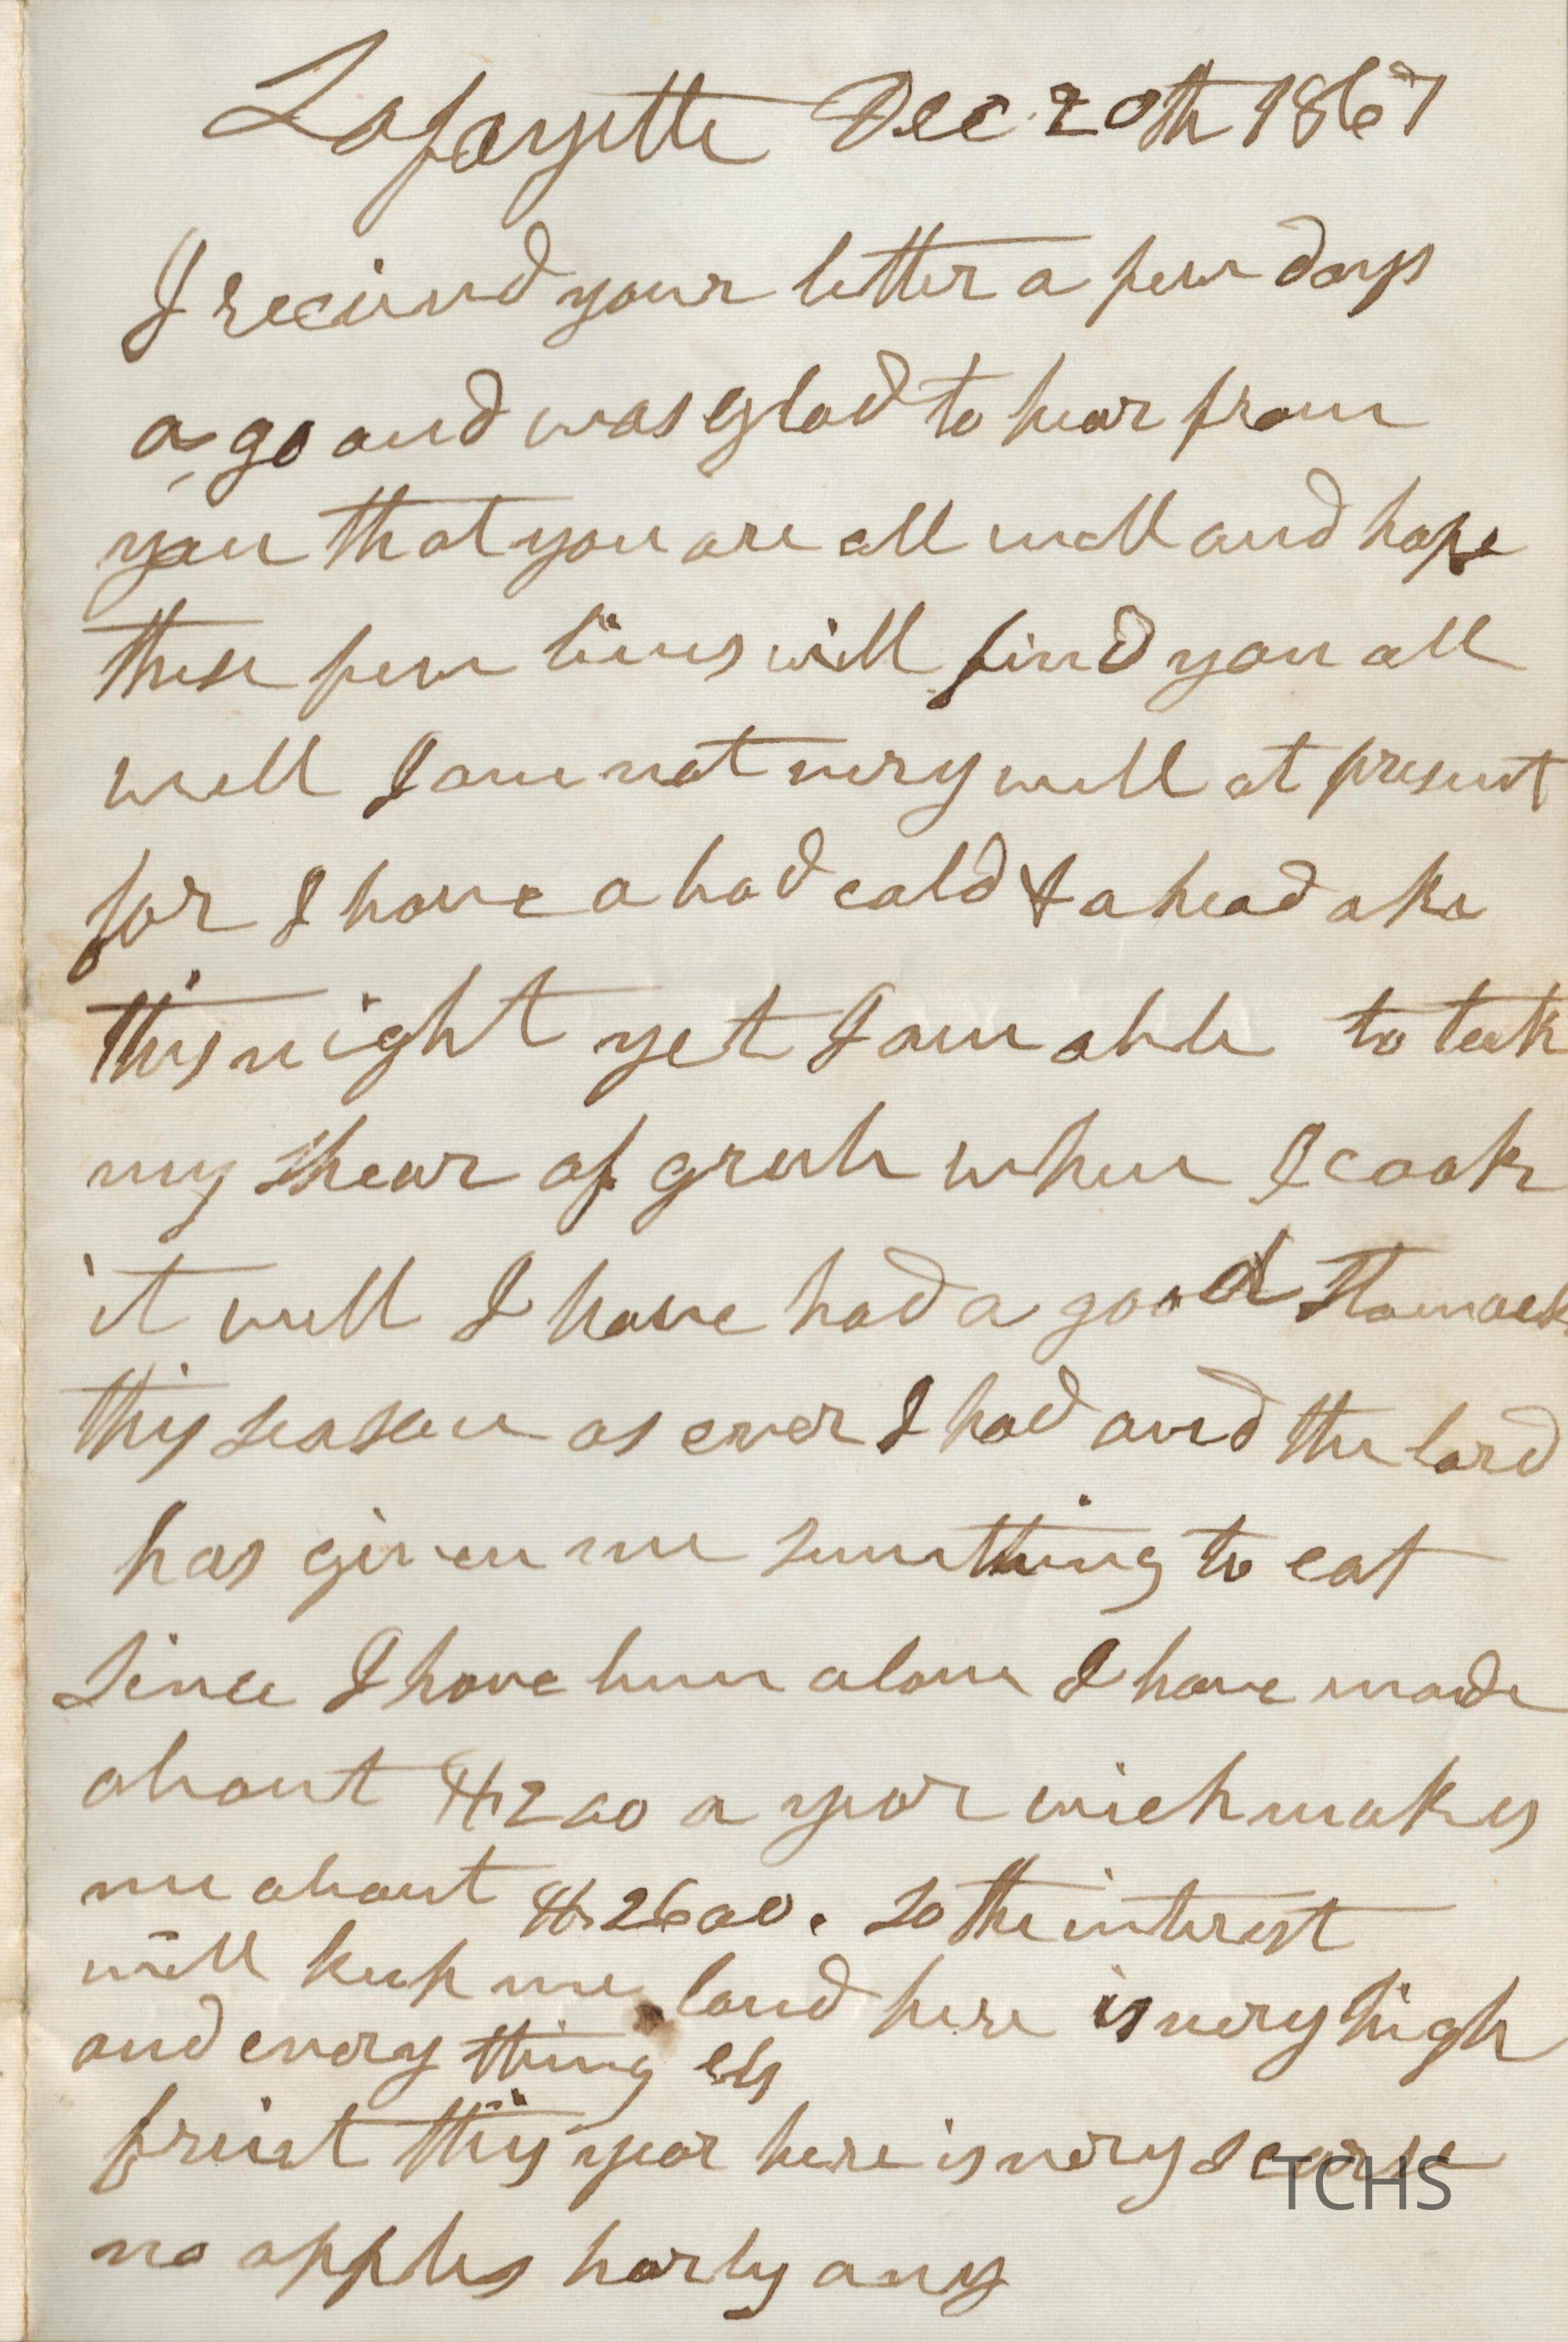 Lafayette Dec 20th 1867
I recieved your letter a few days
a go and was glad to hear from
you that you are all well and hope
these few lines will find you all
well I am not very well at present
for I have a bad cold & a head ake
this night yet I am able to teak
my shear of grub when I cook
it well I have had a good stomack
this season as ever I had and the lord
has given me sumthing to eat
since I have bin alone I have made
about $200 a year wich makes
me about $2600. so the interest
will keep me land here is very high
and every thing els
fruit this year here is very scarse
no apples harly any
TCHS